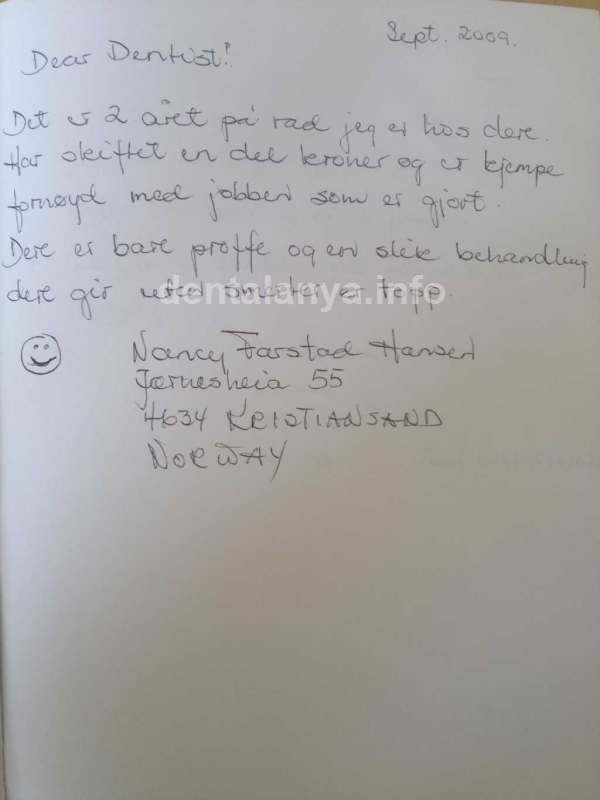 Sept. 2009.
Dear Dentist!
Det er 2 året på rad jeg er hos dere.
Har skiftet en del kroner og er kjempe
fornøyd med jobben som er gjort.
Dere er bare proffe og en slik behandling
dere gir uten smerter er topp.
dentalarya.info
Nancy Farstad Hansen
55
4634 KRISTIANSAND
NORWAY